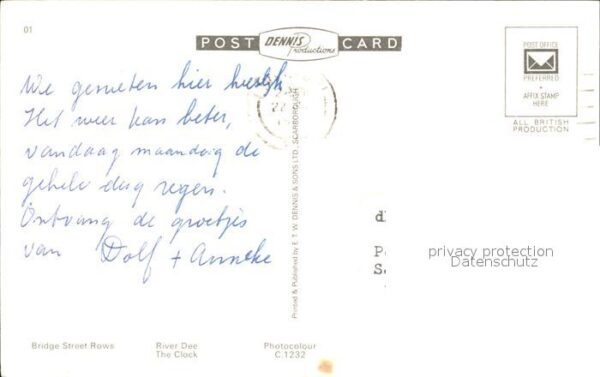 01
POST DENNIS Productions CARD
POST OFFICE
PREFERRED
AFFIX STAMP
HERE
ALL BRITISH
PRODUCTION
22
We genieten hier heerlijk
Het weer kan beter,
vandaag maandag de
gehele dag regen.
Ontvang de groetjes
van Dolf + Anneke
Printed & Published by E. T. W. DENNIS & SONS LTD., SCARBOROUGH
privacy protection
Datenschutz
Bridge Street Rows
River Dee
The Clock
Photocolour
C.1232